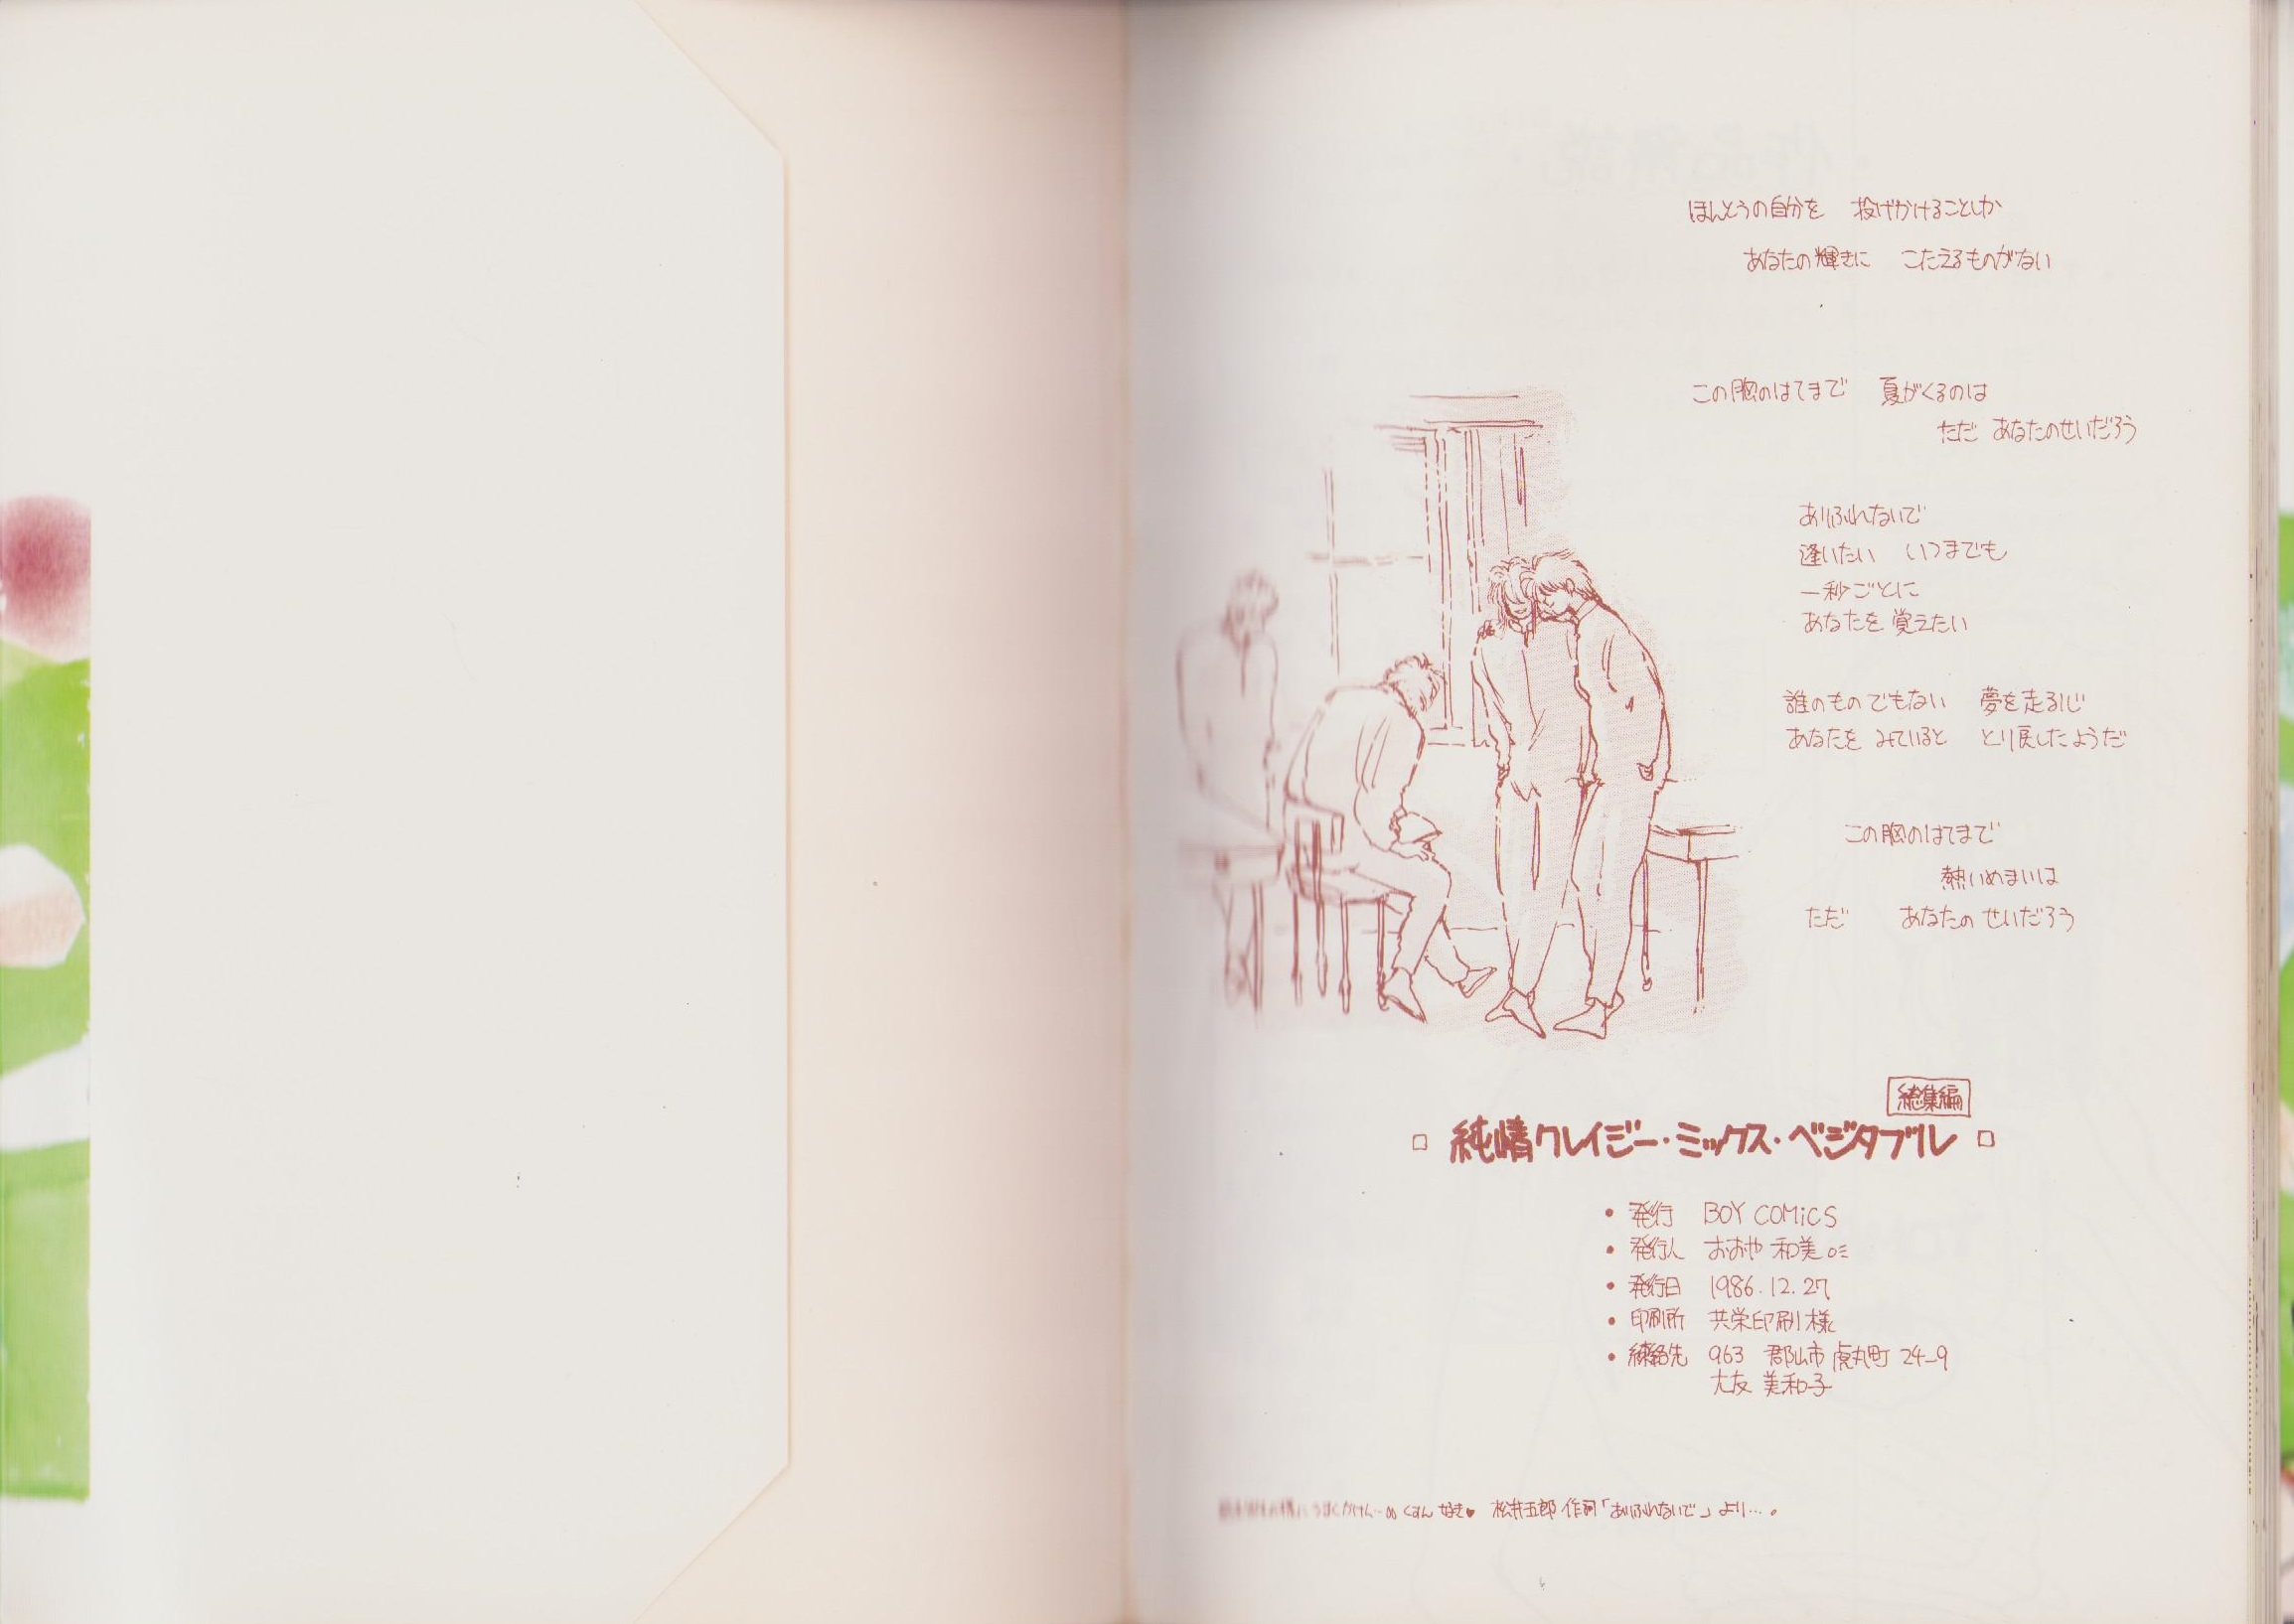 ほんとうの自分を　投げかけることしか
あなたの輝きに　こたえるものがない
この胸のはてまで　夏がくるのは
ただ　あなたのせいだろう
ありふれないで
逢いたい　いつまでも
一秒ごとに
あなたを覚えたい
誰のものでもない　夢を走るしじ
あなたを みていると　とり戻したようだ
この胸のはてまで
熱いめまいは
ただ　あなたの せいだろう
総集編
□ 純情クレイジー・ミックス・ベジタブル □
• 発行　BOY COMiCS
• 発行人　おおや 和美
• 発行日　1986.12.27
• 印刷所　共栄印刷 様
• 連絡先　963　郡山市 虎丸町 24-9
大友 美和子
うまくかけん… くすん 好き♥　松井五郎 作詞「ありふれないで」より…。